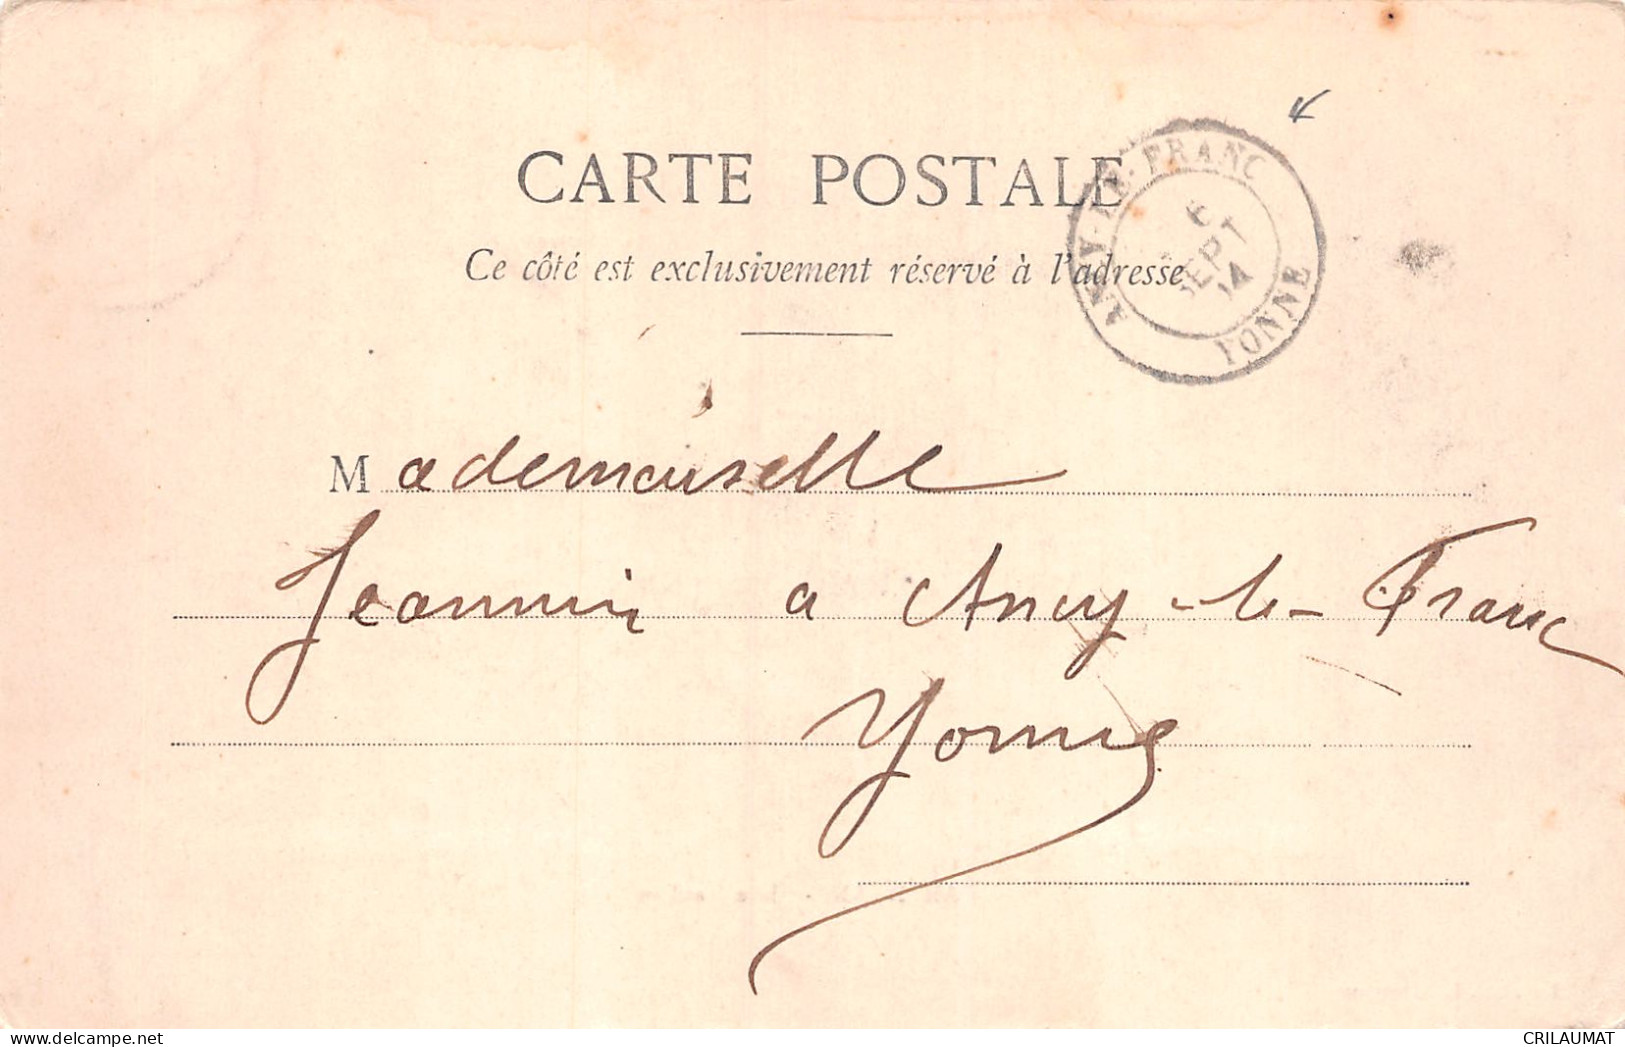 CARTE POSTALE
Ce côté est exclusivement réservé à l'adresse
ANCY-LE-FRANC
6
SEPT
04
YONNE
Mademoiselle
Jeannin a Ancy-le-Franc
Yonne
CRILAUMAT